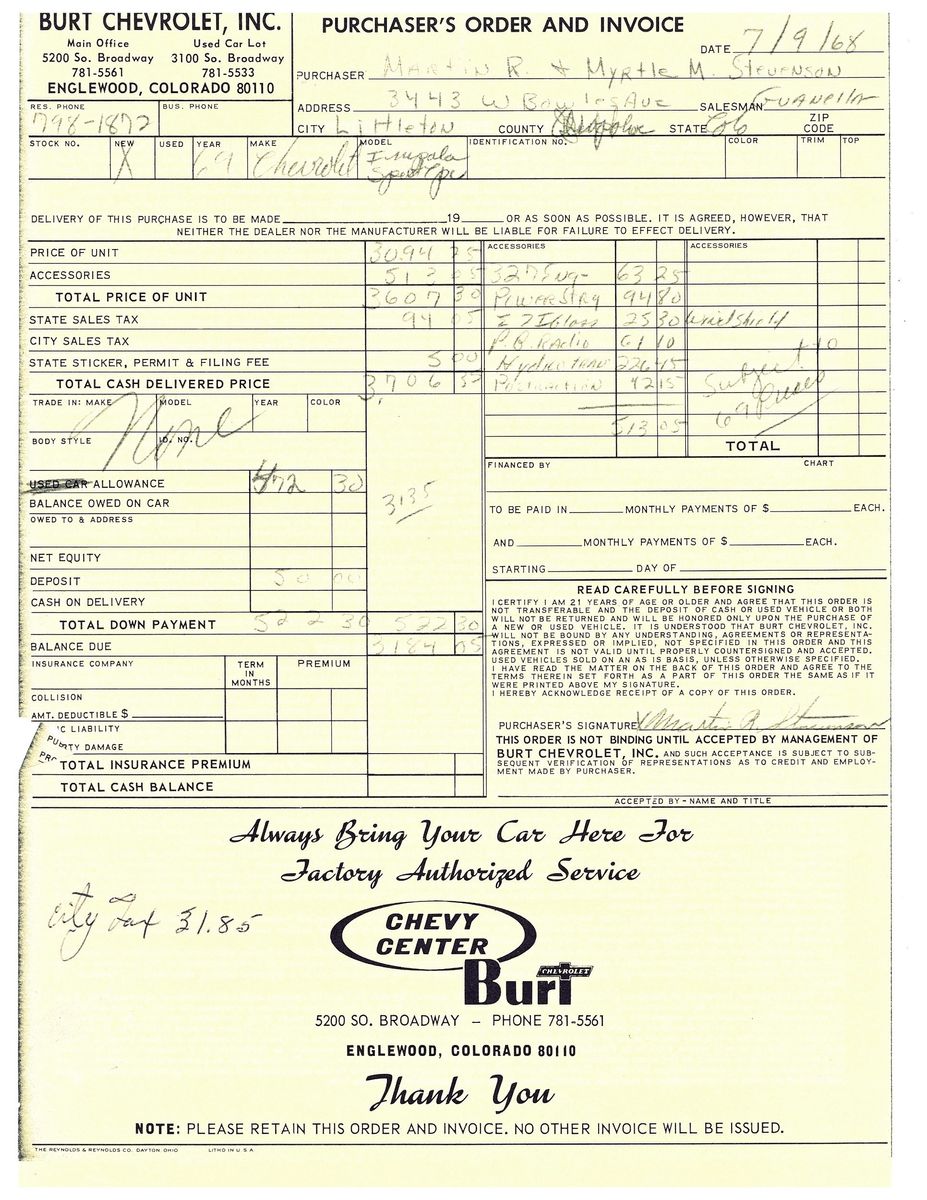 BURT CHEVROLET, INC.
Main Office Used Car Lot
5200 So. Broadway 3100 So. Broadway
781-5561 781-5533
ENGLEWOOD, COLORADO 80110
PURCHASER'S ORDER AND INVOICE
DATE 7/9/68
PURCHASER Martin R. & Myrtle M. Stevenson
ADDRESS 3443 W Bowles Ave SALESMAN Guanella
RES. PHONE 798-1872 BUS. PHONE
CITY Littleton COUNTY Arapahoe STATE Colo ZIP CODE
STOCK NO. NEW X USED YEAR 69 MAKE Chevrolet MODEL Impala Sport Cpe IDENTIFICATION NO. COLOR TRIM TOP
DELIVERY OF THIS PURCHASE IS TO BE MADE 19 OR AS SOON AS POSSIBLE. IT IS AGREED, HOWEVER, THAT
NEITHER THE DEALER NOR THE MANUFACTURER WILL BE LIABLE FOR FAILURE TO EFFECT DELIVERY.
PRICE OF UNIT 3094 25
ACCESSORIES 513 05
TOTAL PRICE OF UNIT 3607 30
STATE SALES TAX 94 05
CITY SALES TAX
STATE STICKER, PERMIT & FILING FEE 5 00
TOTAL CASH DELIVERED PRICE 3706 35
ACCESSORIES ACCESSORIES
327 Eng- 63 25
Power Strg 94 80
Glass 25 30 windshield
P.B. Radio 61 10
226 45
Positraction 42 15
513 05
Subject to
69 Prices
TOTAL
TRADE IN: MAKE MODEL YEAR COLOR
None
BODY STYLE I.D. NO.
USED CAR ALLOWANCE 472 30
BALANCE OWED ON CAR
3135
OWED TO & ADDRESS
NET EQUITY
DEPOSIT 50 00
CASH ON DELIVERY
TOTAL DOWN PAYMENT 522 30 522 30
BALANCE DUE 3184 05
INSURANCE COMPANY TERM IN MONTHS PREMIUM
COLLISION
AMT. DEDUCTIBLE $
IC LIABILITY
TY DAMAGE
TOTAL INSURANCE PREMIUM
TOTAL CASH BALANCE
FINANCED BY CHART
TO BE PAID IN MONTHLY PAYMENTS OF $ EACH.
AND MONTHLY PAYMENTS OF $ EACH.
STARTING DAY OF
READ CAREFULLY BEFORE SIGNING
I CERTIFY I AM 21 YEARS OF AGE OR OLDER AND AGREE THAT THIS ORDER IS
NOT TRANSFERABLE AND THE DEPOSIT OF CASH OR USED VEHICLE OR BOTH
WILL NOT BE RETURNED AND WILL BE HONORED ONLY UPON THE PURCHASE OF
A NEW OR USED VEHICLE. IT IS UNDERSTOOD THAT BURT CHEVROLET, INC.
WILL NOT BE BOUND BY ANY UNDERSTANDING, AGREEMENTS OR REPRESENTA-
TIONS, EXPRESSED OR IMPLIED, NOT SPECIFIED IN THIS ORDER AND THIS
AGREEMENT IS NOT VALID UNTIL PROPERLY COUNTERSIGNED AND ACCEPTED.
USED VEHICLES SOLD ON AN AS IS BASIS, UNLESS OTHERWISE SPECIFIED.
I HAVE READ THE MATTER ON THE BACK OF THIS ORDER AND AGREE TO THE
TERMS THEREIN SET FORTH AS A PART OF THIS ORDER THE SAME AS IF IT
WERE PRINTED ABOVE MY SIGNATURE.
I HEREBY ACKNOWLEDGE RECEIPT OF A COPY OF THIS ORDER.
PURCHASER'S SIGNATURE X Martin R Stevenson
THIS ORDER IS NOT BINDING UNTIL ACCEPTED BY MANAGEMENT OF
BURT CHEVROLET, INC. AND SUCH ACCEPTANCE IS SUBJECT TO SUB-
SEQUENT VERIFICATION OF REPRESENTATIONS AS TO CREDIT AND EMPLOY-
MENT MADE BY PURCHASER.
ACCEPTED BY - NAME AND TITLE
Always Bring Your Car Here For
Factory Authorized Service
City Tax 31.85
CHEVY
CENTER
CHEVROLET
Burt
5200 SO. BROADWAY — PHONE 781-5561
ENGLEWOOD, COLORADO 80110
Thank You
NOTE: PLEASE RETAIN THIS ORDER AND INVOICE. NO OTHER INVOICE WILL BE ISSUED.
THE REYNOLDS & REYNOLDS CO. DAYTON, OHIO LITHO IN U.S.A.